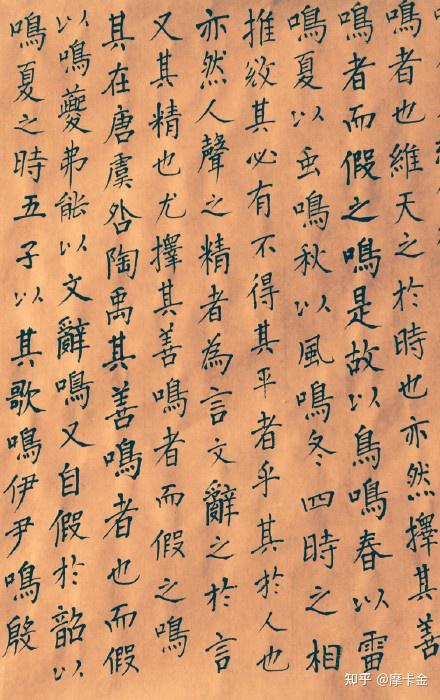 鳴者也維天之於時也亦然擇其善
鳴者而假之鳴是故以鳥鳴春以雷
鳴夏以虫鳴秋以風鳴冬四時之相
推敓其必有不得其平者乎其於人也
亦然人聲之精者為言文辭之於言
又其精也尤擇其善鳴者而假之鳴
其在唐虞咎陶禹其善鳴者也而假
以鳴夔弗能以文辭鳴又自假於韶以
鳴夏之時五子以其歌鳴伊尹鳴殷
知乎 @摩卡金